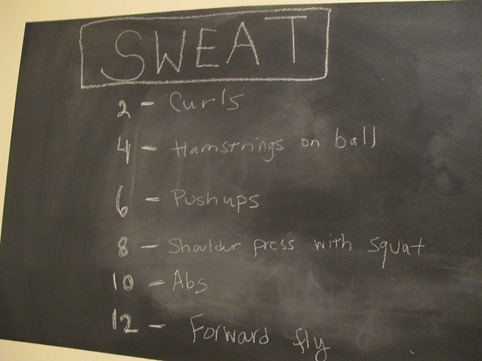 SWEAT
2 - Curls
4 - Hamstrings on ball
6 - Pushups
8 - Shoulder press with squat
10 - Abs
12 - Forward fly